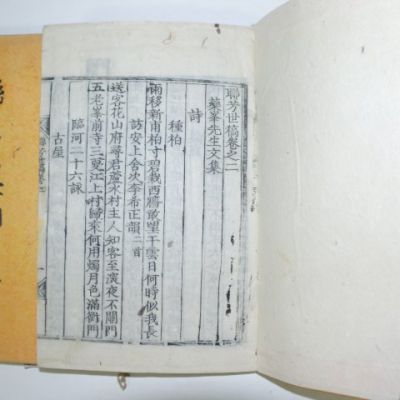 聯芳世稿卷之二
藥峯先生文集
詩
種柏
兩移新甫柏寸碧栽西牆敢望干雲日何時似我長
訪安上舍次李希正韻二首
送客花山府尋君蘆家村主人知客至深夜不關門
五老峯前寺三更江上村歸來何用燭月色滿衡門
臨河二十六詠
古屋